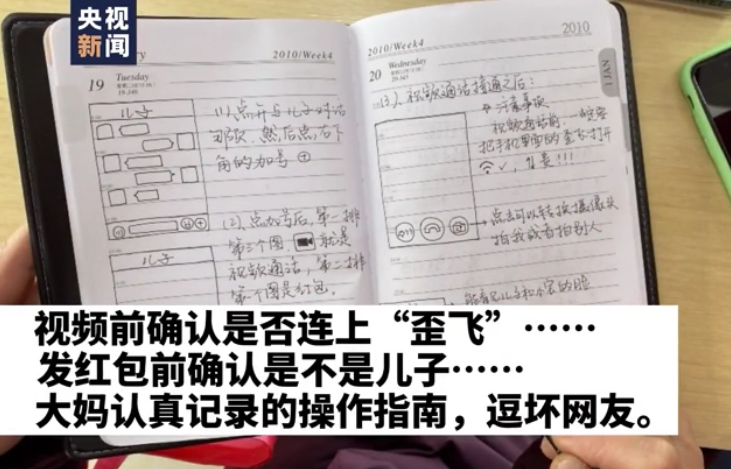 央视
新闻
2010/Week4
19 Tuesday
儿子
(1)点开与儿子对话
那页，然后点右下
角的加号⊕
(2)、点加号后，第一排
第三个图 就是
视频通话，第二排
第一个图是红包
儿子
2010/Week4
2010
20 Wednesday
1 JAN
(3)、视频通话接通之后：
注意事项
视频通话前，一定要
把手机里面的歪飞打开
✓，省卖!!!
点击可以转换摄像头
拍我或者拍别人
能看见儿子和小家的脸
视频前确认是否连上“歪飞”……
发红包前确认是不是儿子……
大妈认真记录的操作指南，逗坏网友。